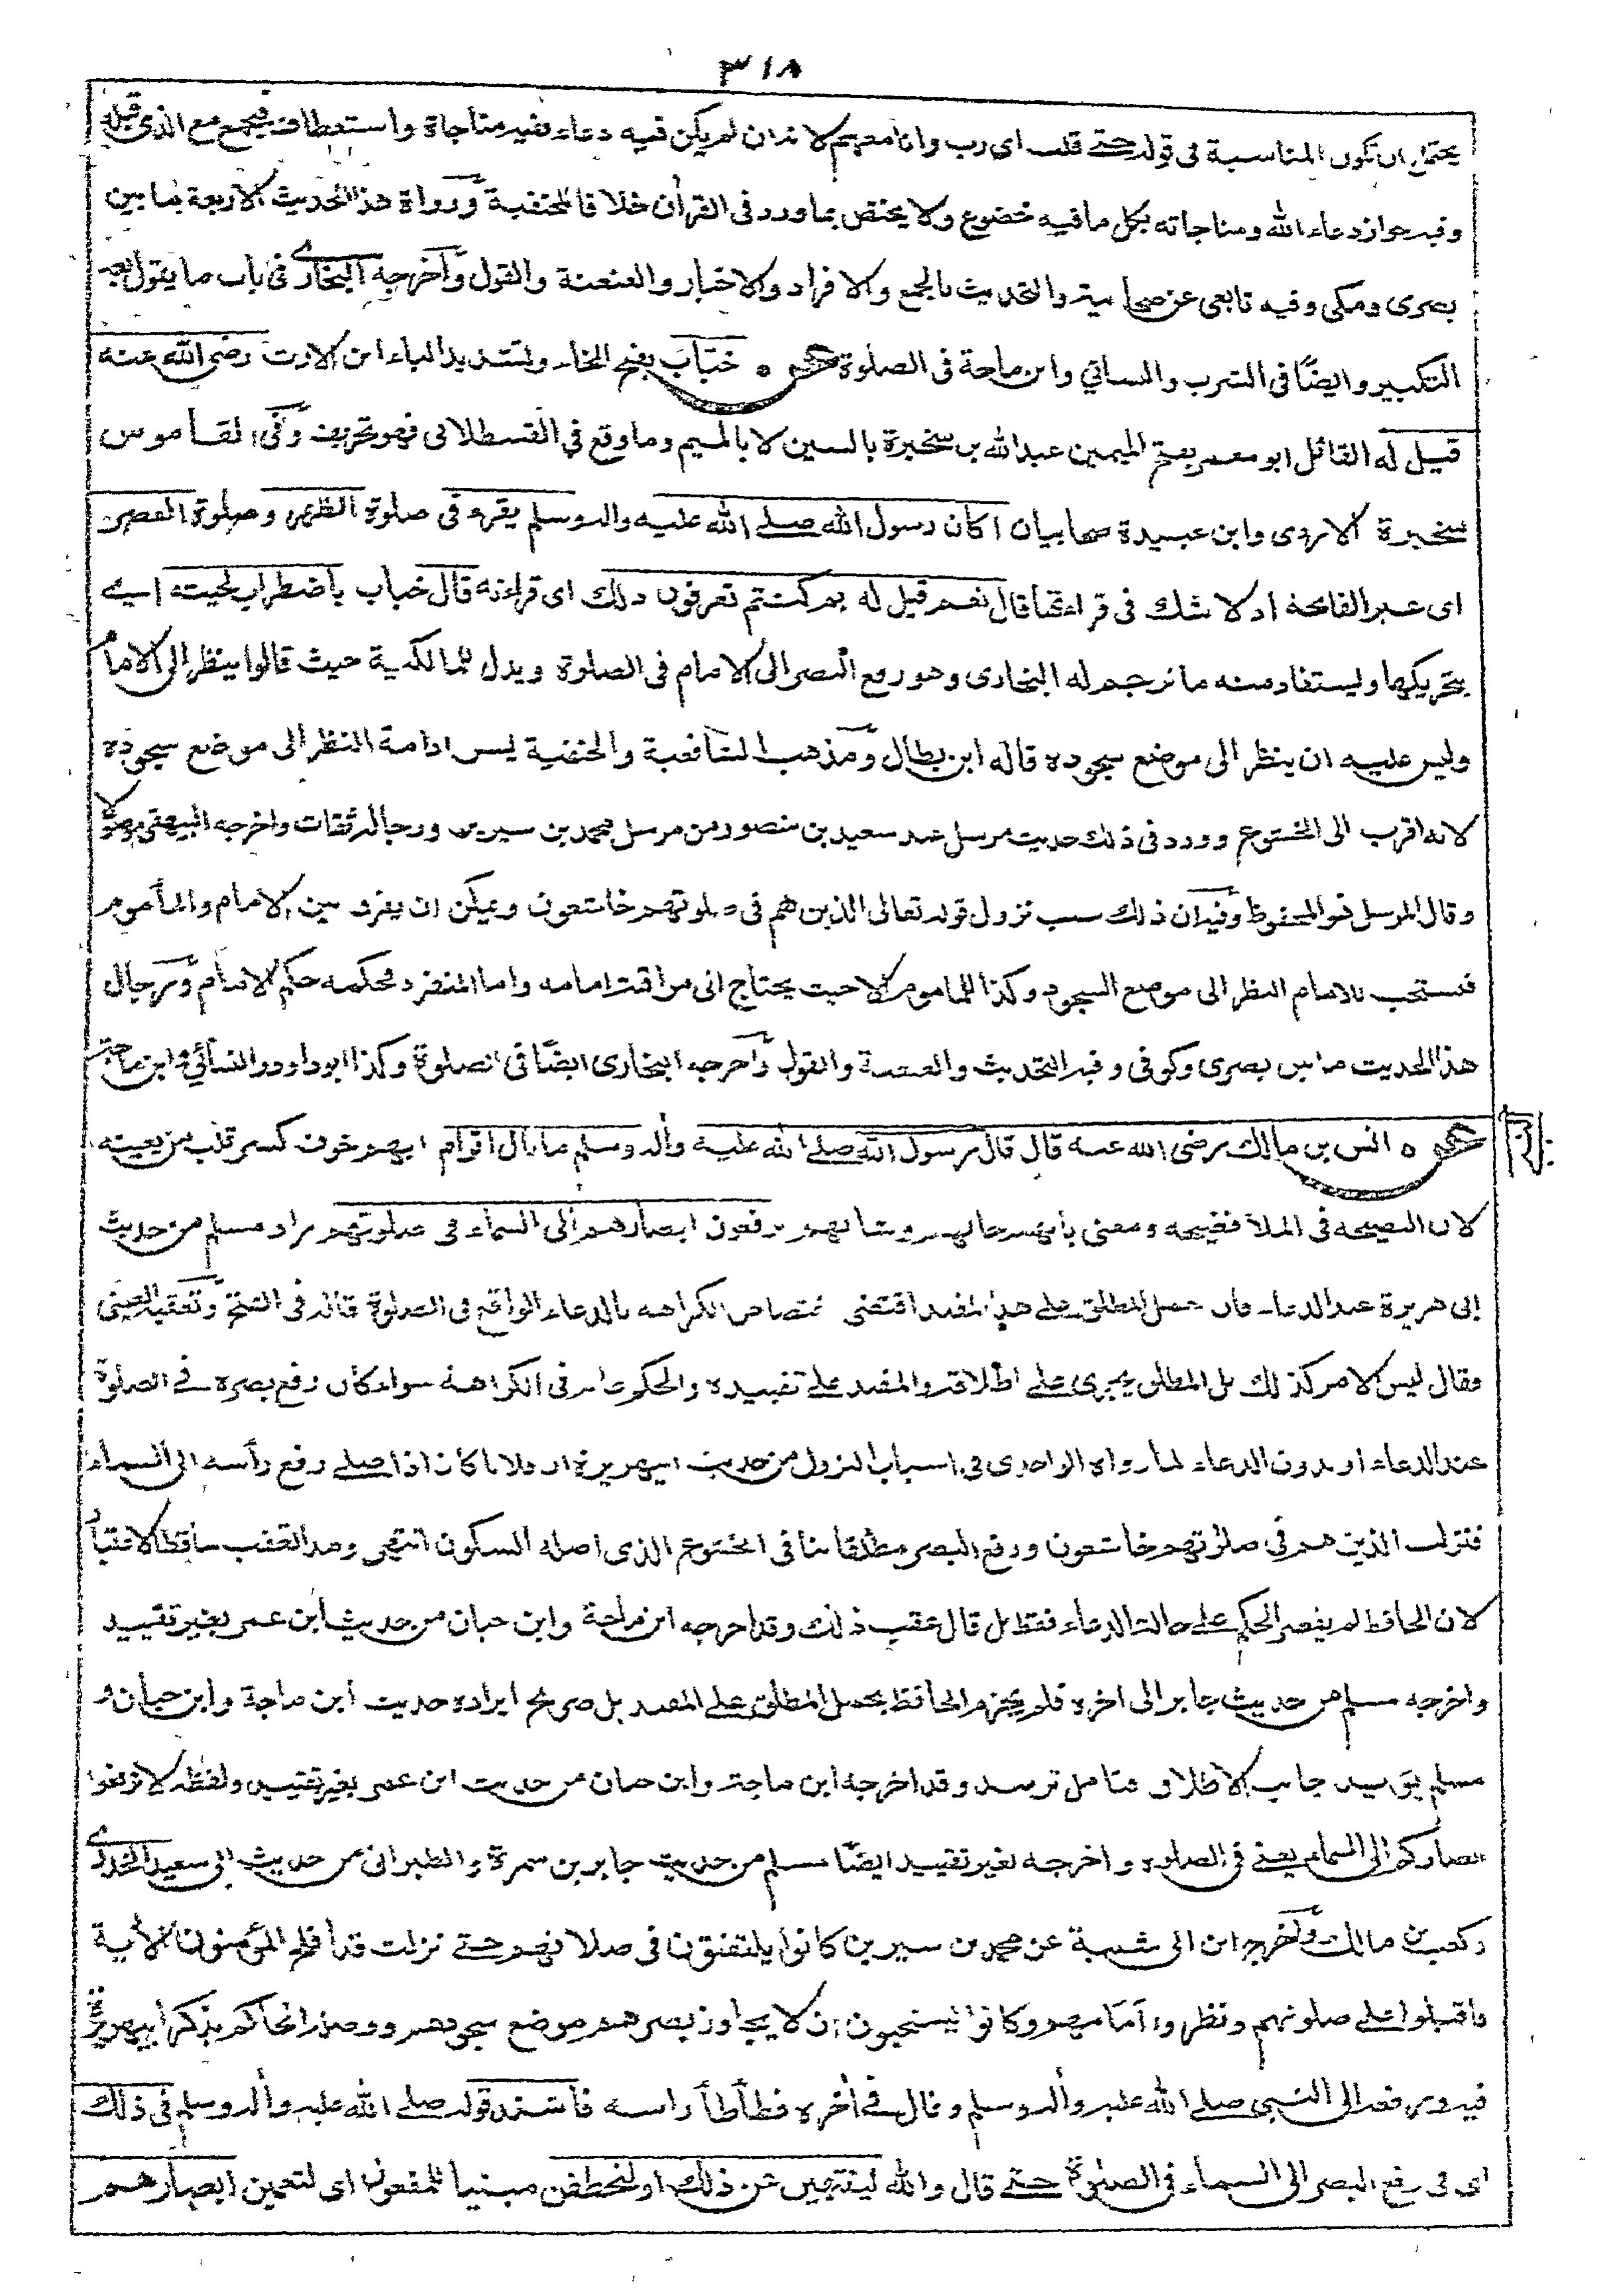 ٣١٨
يحتمل ان تكون المناسبة فى قوله حتى قلت اى رب وانا معهم لانه ان لم يكن فيه دعاء ففيه مناجاة واستعطاف فيجمع مع الذى قبله
وفيه جواز دعاء الله ومناجاته بكل ما فيه خضوع ولا يختص بما ورد فى القرآن خلافا للحنفية ورواة هذا الحديث الاربعة ما بين
بصرى ومكى وفيه تابعى عن صحابية والتحديث بالجمع والافراد والاخبار والعنعنة والقول وأخرجه البخارى فى باب ما يقول بعد
التكبير وايضًا فى الشرب والنسائي وابن ماجة فى الصلوة ٥ خبّاب بفتح الخاء وتشديد الباء ابن الارت رضى الله عنه
قيل له القائل ابو معمر بفتح الميمين عبد الله بن سخبرة بالسين لا بالميم وما وقع في القسطلانى فهو تحريف وفى القاموس
سخبرة الازدى وابن عبيدة صحابيان أكان رسول الله صلى الله عليه واله وسلم يقرء فى صلوة الظهر وصلوة العصر
اى غير الفاتحة اذ لا شك فى قراءتها قال نعم قيل له بم كنتم تعرفون ذلك اى قراءته قال خباب باضطراب لحيته اى
بتحريكها ويستفاد منه ما ترجم له البخارى وهو رفع البصر الى الامام فى الصلوة ويدل للمالكية حيث قالوا ينظر الى الامام
وليس عليه ان ينظر الى موضع سجوده قاله ابن بطال ومذهب الشافعية والحنفية يسن ادامة النظر الى موضع سجوده
لانه اقرب الى الخشوع وورد فى ذلك حديث مرسل عند سعيد بن منصور من مرسل محمد بن سيرين ورجاله ثقات واخرجه البيهقى موصولا
وقال المرسل هو المحفوظ وفيه ان ذلك سبب نزول قوله تعالى الذين هم فى صلوتهم خاشعون ويمكن ان يفرق بين الامام والمأموم
فيستحب للامام النظر الى موضع السجود وكذا للماموم الا حيث يحتاج الى مراقبة امامه واما المنفرد فحكمه حكم الامام ورجال
هذا الحديث ما بين بصرى وكوفى وفيه التحديث والعنعنة والقول وأخرجه البخارى ايضًا فى الصلوة وكذا ابو داود والنسائي وابن ماجة
٥ انس بن مالك رضى الله عنه قال قال رسول الله صلى الله عليه وأله وسلم ما بال اقوام ابهم خوف كسر قلب من يعينه
لان النصيحة فى الملأ فضيحة ومعنى بالهم حالهم وشانهم يرفعون ابصارهم الى السماء فى صلوتهم زاد مسلم من حديث
ابى هريرة عند الدعاء فان حمل المطلق على هذا المقيد اقتضى اختصاص الكراهة بالدعاء الواقع فى الصلوة قاله فى الفتح وتعقبه العينى
وقال ليس الامر كذلك بل المطلق يجرى على اطلاقه والمقيد على تقييده والحكم عام فى الكراهة سواء كان رفع بصره فى الصلوة
عند الدعاء او بدون الدعاء لما رواه الواحدى فى اسباب النزول من حديث ابى هريرة ان فلانا كان اذا صلى رفع رأسه الى السماء
فنزلت الذين هم فى صلوتهم خاشعون ورفع البصر مطلقا ينافى الخشوع الذى اصله السكون انتهى وهذا التعقب ساقط الاعتبار
لان الحافظ لم يقصر الحكم على حالة الدعاء فقط بل قال عقب ذلك وقد اخرجه ابن ماجة وابن حبان من حديث ابن عمر بغير تقييد
واخرجه مسلم من حديث جابر الى اخره فلم يجزم الحافظ بحمل المطلق على المقيد بل صريح ايراده حديث ابن ماجة وابن حبان و
مسلم يؤيد جانب الاطلاق فتامل ترشد وقد اخرجه ابن ماجة وابن حبان من حديث ابن عمر بغير تقييد ولفظه لا ترفعوا
ابصاركم الى السماء يعنى فى الصلوة واخرجه بغير تقييد ايضًا مسلم من حديث جابر بن سمرة والطبرانى من حديث ابى سعيد الخدرى
وكعب بن مالك وأخرج ابن ابى شيبة عن محمد بن سيرين كانوا يلتفتون فى صلاتهم حتى نزلت قد أفلح المؤمنون الأية
فاقبلوا على صلوتهم ونظروا أمامهم وكانوا يستحبون ان لا يجاوز بصرهم موضع سجودهم ووصله الحاكم بذكر ابى هريرة
فيه ورفعه الى النبى صلى الله عليه وأله وسلم وقال فى أخره فطأطأ راسه فأشتد قوله صلى الله عليه وأله وسلم فى ذلك
اى فى رفع البصر الى السماء فى الصلوة حتى قال والله لينتهين عن ذلك او لتخطفن مبنيا للمفعول اى لتعمين ابصارهم